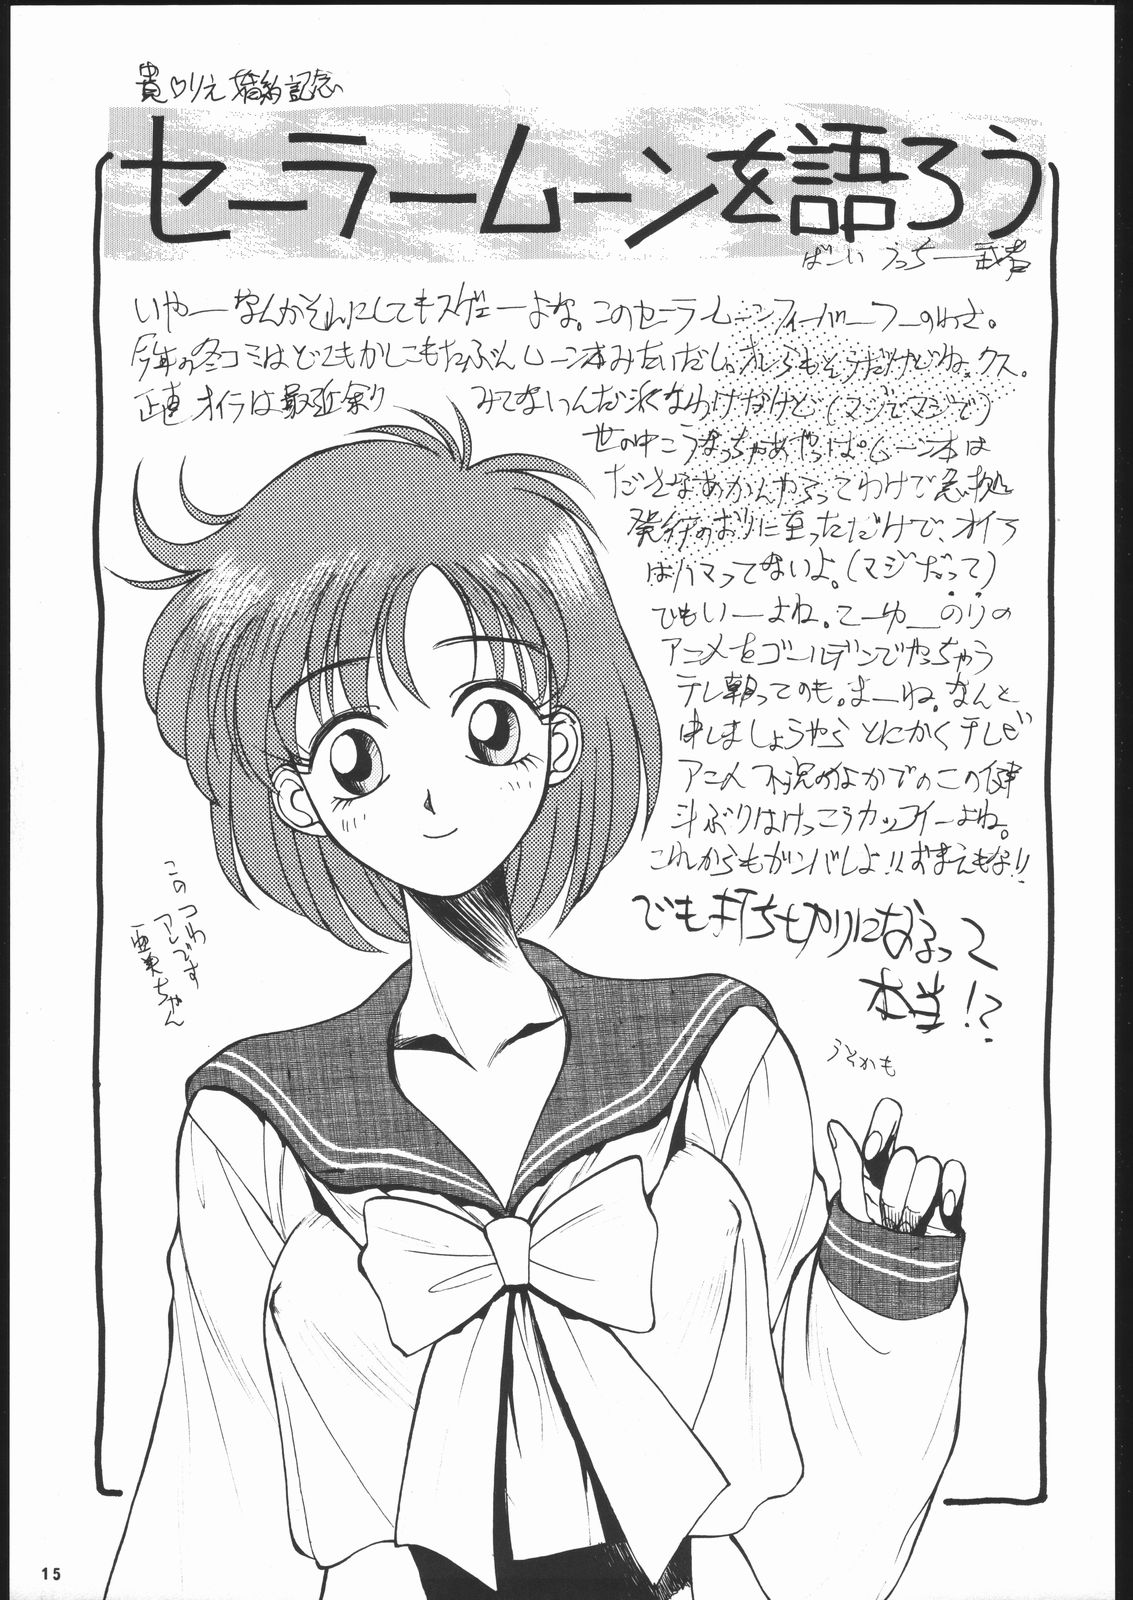 貴♡りえ 婚約記念
セーラームーンを語ろう
ばーい うっちー武者
いやーなんかそんにしてもスゲェーよね。このセーラームーンフィーバーってのわさ。
今年の冬コミはどこもかしこもたぶんムーン本みたいだし。オレらもそうだけどね。クス。
正直オイラは最近余り みてないんだなわけだけど(マジでマジで)
世の中こうなっちゃあやっぱムーン本は
ださなあかんやろってわけで急拠
発行のおりに至っただけで、オイラ
はハマってないよ。(マジだって)
でもいーよね。こーゆーのりの
アニメをゴールデンでやっちゃう
テレ朝ってのも。まーね。なんと
申しましょうやら とにかくテレビ
アニメ不況のなかでのこの健
斗ぶりはけっこうカッコイーよね。
これからもガンバレよ!!おまえもな!!
でも打ち切りになるって
本当!?
うそかも
このつわ
アレです
亜美ちゃん
15